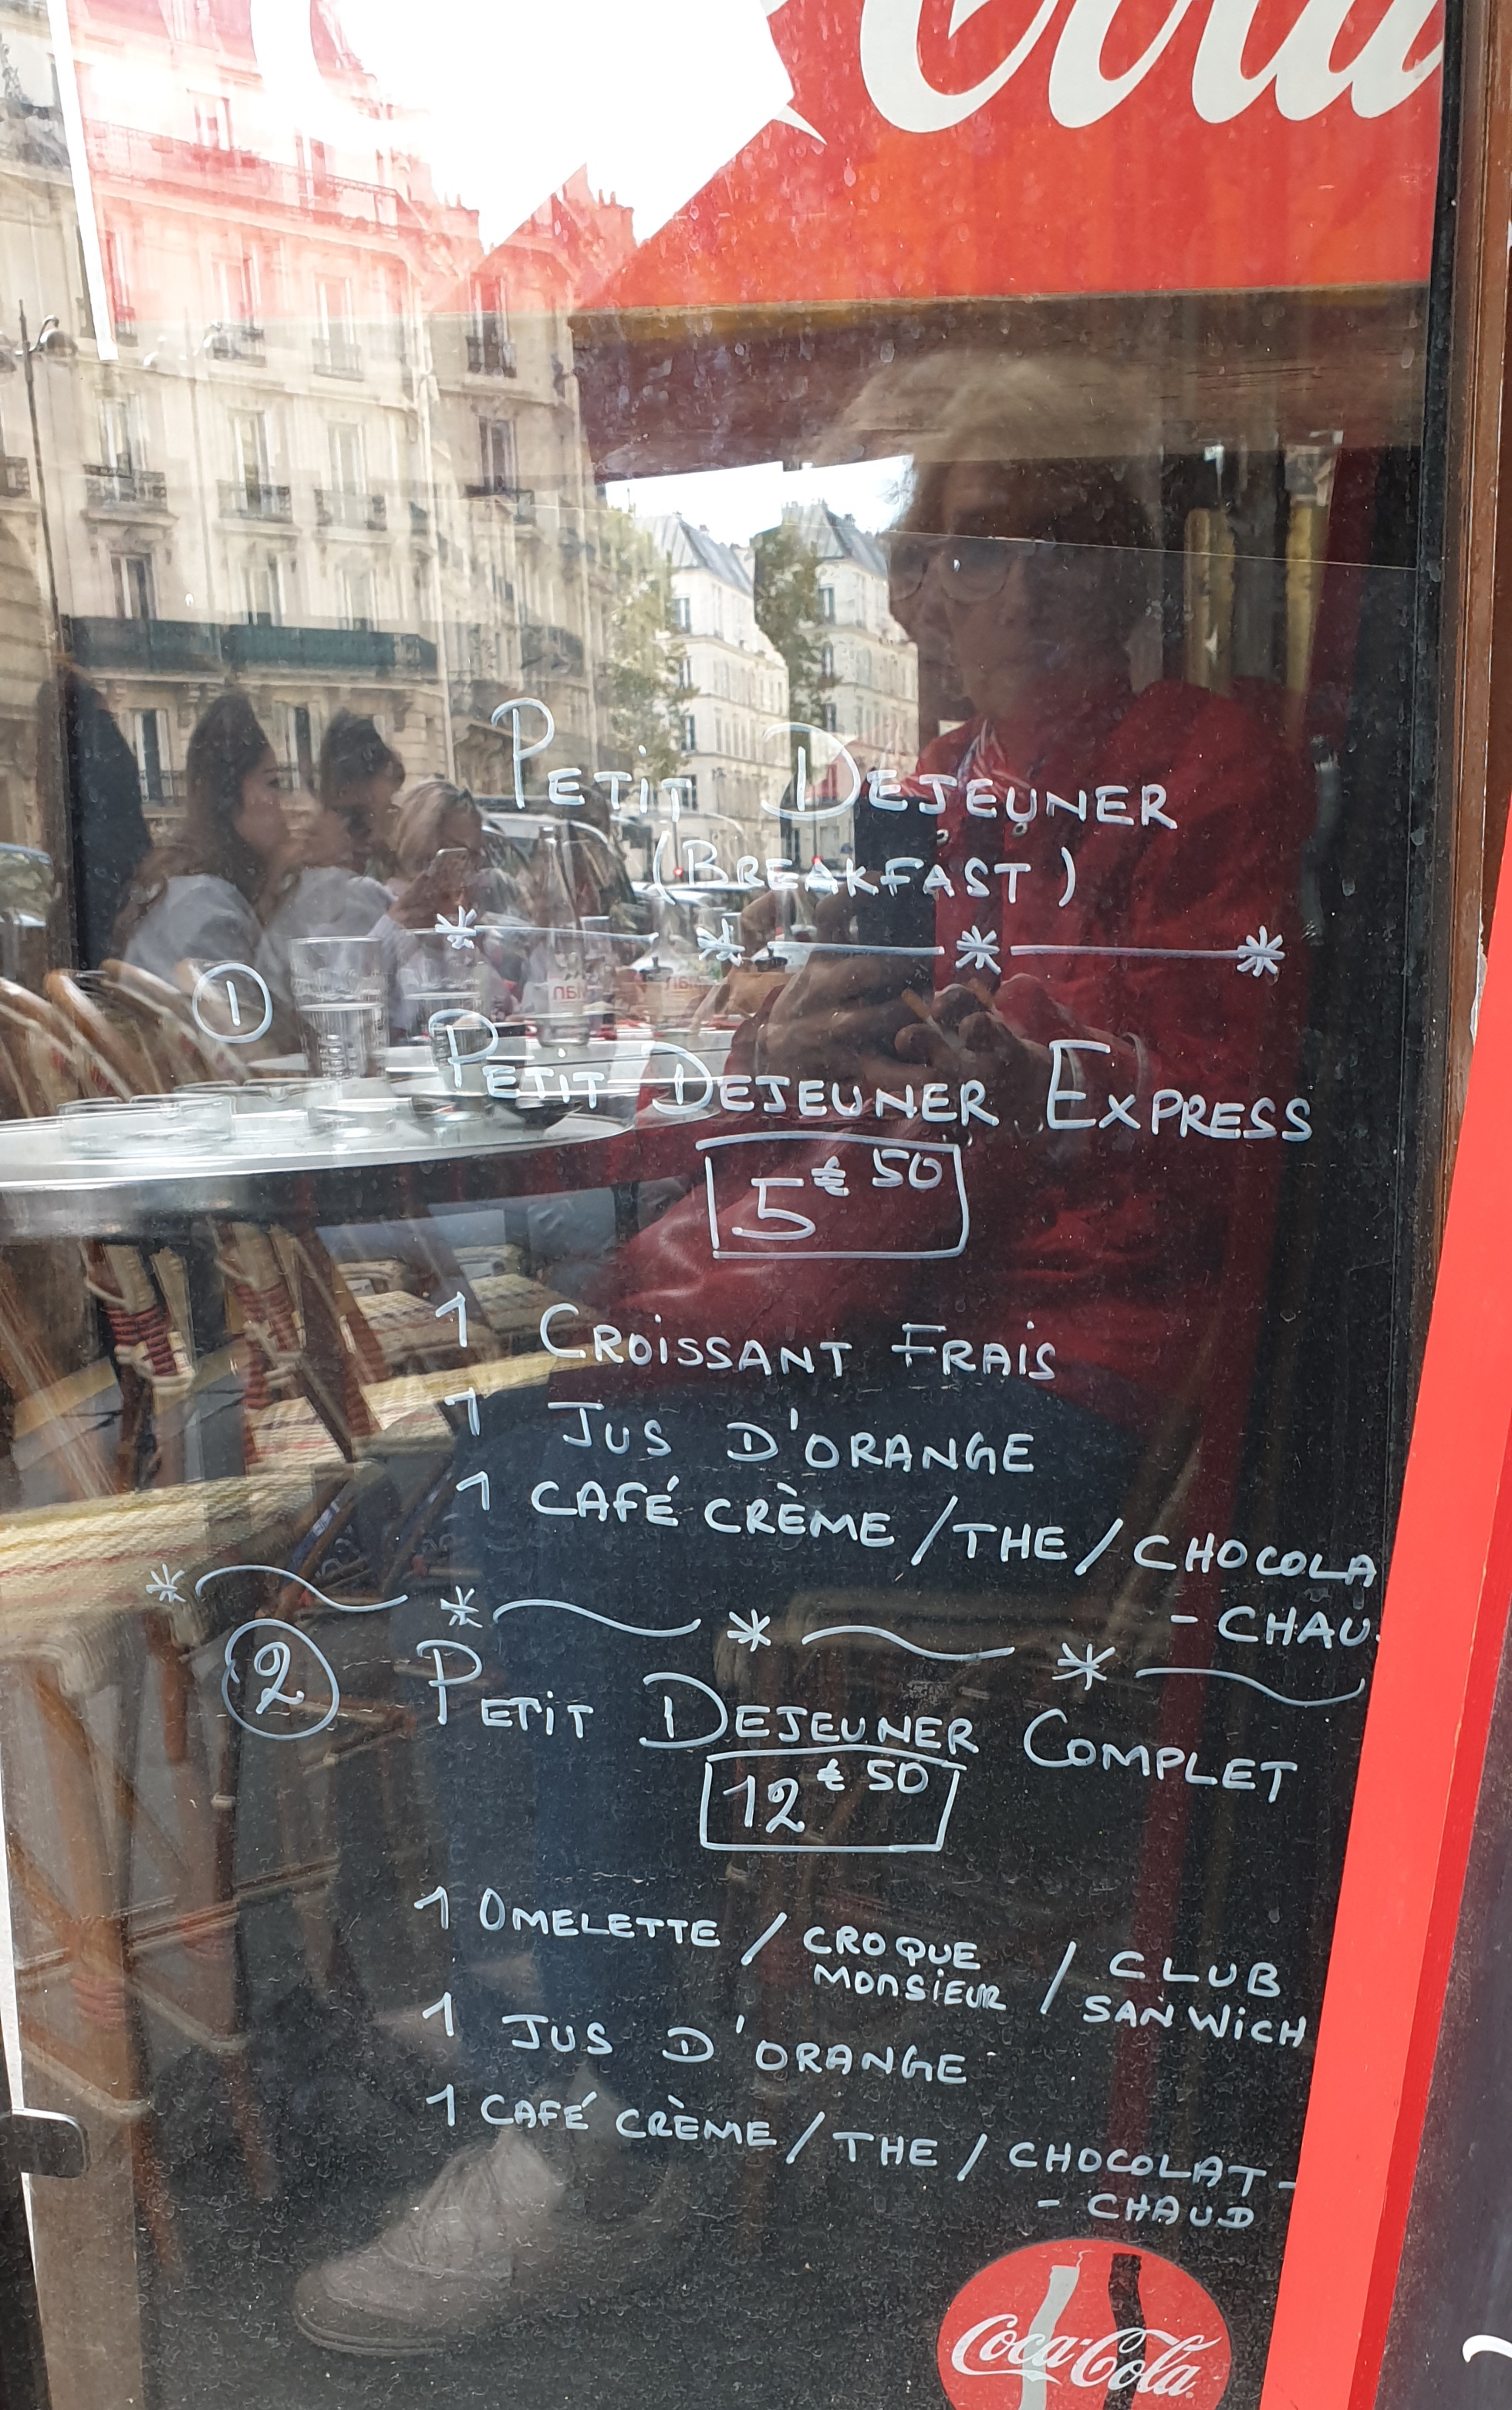 Cola
PETIT DEJEUNER
(BREAKFAST)
1
PETIT DEJEUNER EXPRESS
5€50
1 CROISSANT FRAIS
1 JUS D'ORANGE
1 CAFÉ CRÈME / THE / CHOCOLA
- CHAU
2
PETIT DEJEUNER COMPLET
12€50
1 OMELETTE / CROQUE MONSIEUR / CLUB SANWICH
1 JUS D'ORANGE
1 CAFÉ CRÈME / THE / CHOCOLAT -
- CHAUD
Coca-Cola